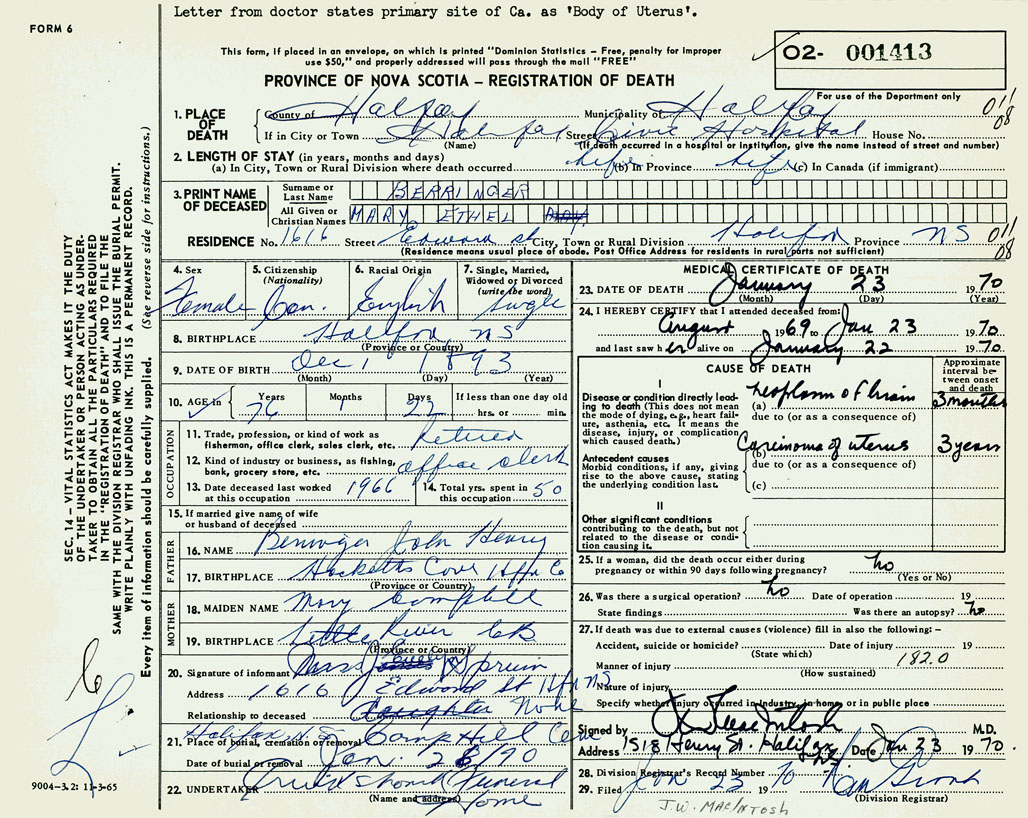 Letter from doctor states primary site of Ca. as 'Body of Uterus'.
FORM 6
This form, if placed in an envelope, on which is printed "Dominion Statistics – Free, penalty for improper
use $50," and properly addressed will pass through the mail "FREE"
O2- 001413
PROVINCE OF NOVA SCOTIA – REGISTRATION OF DEATH
For use of the Department only
1. PLACE OF DEATH County of Halifax Municipality of Halifax 011 08
If in City or Town Halifax Street Civic Hospital House No.
(Name) (If death occurred in a hospital or institution, give the name instead of street and number)
2. LENGTH OF STAY (in years, months and days)
(a) In City, Town or Rural Division where death occurred life (b) In Province life (c) In Canada (if immigrant)
3. PRINT NAME OF DECEASED Surname or Last Name BERRINGER
All Given or Christian Names MARY ETHEL
RESIDENCE No. 1616 Street Edward St City, Town or Rural Division Halifax Province NS 011 08
(Residence means usual place of abode. Post Office Address for residents in rural parts not sufficient)
4. Sex Female
5. Citizenship (Nationality) Can.
6. Racial Origin English
7. Single, Married, Widowed or Divorced (write the word) Single
8. BIRTHPLACE Halifax NS
(Province or Country)
9. DATE OF BIRTH Dec 1 1893
(Month) (Day) (Year)
10. AGE in Years 76 Months 1 Days 22 If less than one day old hrs. or min.
OCCUPATION
11. Trade, profession, or kind of work as fishermen, office clerk, sales clerk, etc. Retired
12. Kind of industry or business, as fishing, bank, grocery store, etc. office clerk
13. Date deceased last worked at this occupation 1966 14. Total yrs. spent in this occupation 50
15. If married give name of wife or husband of deceased
FATHER
16. NAME Berringer John Henry
17. BIRTHPLACE Hacketts Cove Hfx Co
(Province or Country)
MOTHER
18. MAIDEN NAME Mary Campbell
19. BIRTHPLACE Little River CB
(Province or Country)
20. Signature of informant
Address 1616 Edward St Hfx NS
Relationship to deceased daughter None
21. Place of burial, cremation or removal Halifax, N.S. Camp Hill Cem
Date of burial or removal Jan. 26/70
22. UNDERTAKER Cruickshank Funeral Home
(Name and address)
MEDICAL CERTIFICATE OF DEATH
23. DATE OF DEATH January 23 1970
(Month) (Day) (Year)
24. I HEREBY CERTIFY that I attended deceased from:
August 1969 to Jan 23 1970
and last saw her alive on January 22 1970
CAUSE OF DEATH
Approximate interval between onset and death
I
Disease or condition directly leading to death (This does not mean the mode of dying, e.g., heart failure, asthenia, etc. It means the disease, injury, or complication which caused death.)
(a) neoplasm of brain 3 months
due to (or as a consequence of)
Antecedent causes
Morbid conditions, if any, giving rise to the above cause, stating the underlying condition last.
(b) Carcinoma of uterus 3 years
due to (or as a consequence of)
(c)
II
Other significant conditions contributing to the death, but not related to the disease or condition causing it.
25. If a woman, did the death occur either during pregnancy or within 90 days following pregnancy? no
(Yes or No)
26. Was there a surgical operation? no Date of operation 19
State findings Was there an autopsy? no
27. If death was due to external causes (violence) fill in also the following: –
Accident, suicide or homicide? Date of injury 19
(State which) 182.0
Manner of injury
(How sustained)
Nature of injury
Specify whether injury occurred in industry, in home, or in public place
Signed by M.D.
Address 1518 Henry St. Halifax NS Date Jan 23 1970.
28. Division Registrar's Record Number
29. Filed Jan 23 1970
(Division Registrar)
J.W. MACINTOSH
SEC. 14 – VITAL STATISTICS ACT MAKES IT THE DUTY
OF THE UNDERTAKER OR PERSON ACTING AS UNDER-
TAKER TO OBTAIN ALL THE PARTICULARS REQUIRED
IN THE "REGISTRATION OF DEATH" AND TO FILE THE
SAME WITH THE DIVISION REGISTRAR WHO SHALL ISSUE THE BURIAL PERMIT.
WRITE PLAINLY WITH UNFADING INK. THIS IS A PERMANENT RECORD.
Every item of information should be carefully supplied. (See reverse side for instructions.)
9004-3.2: 11-3-65